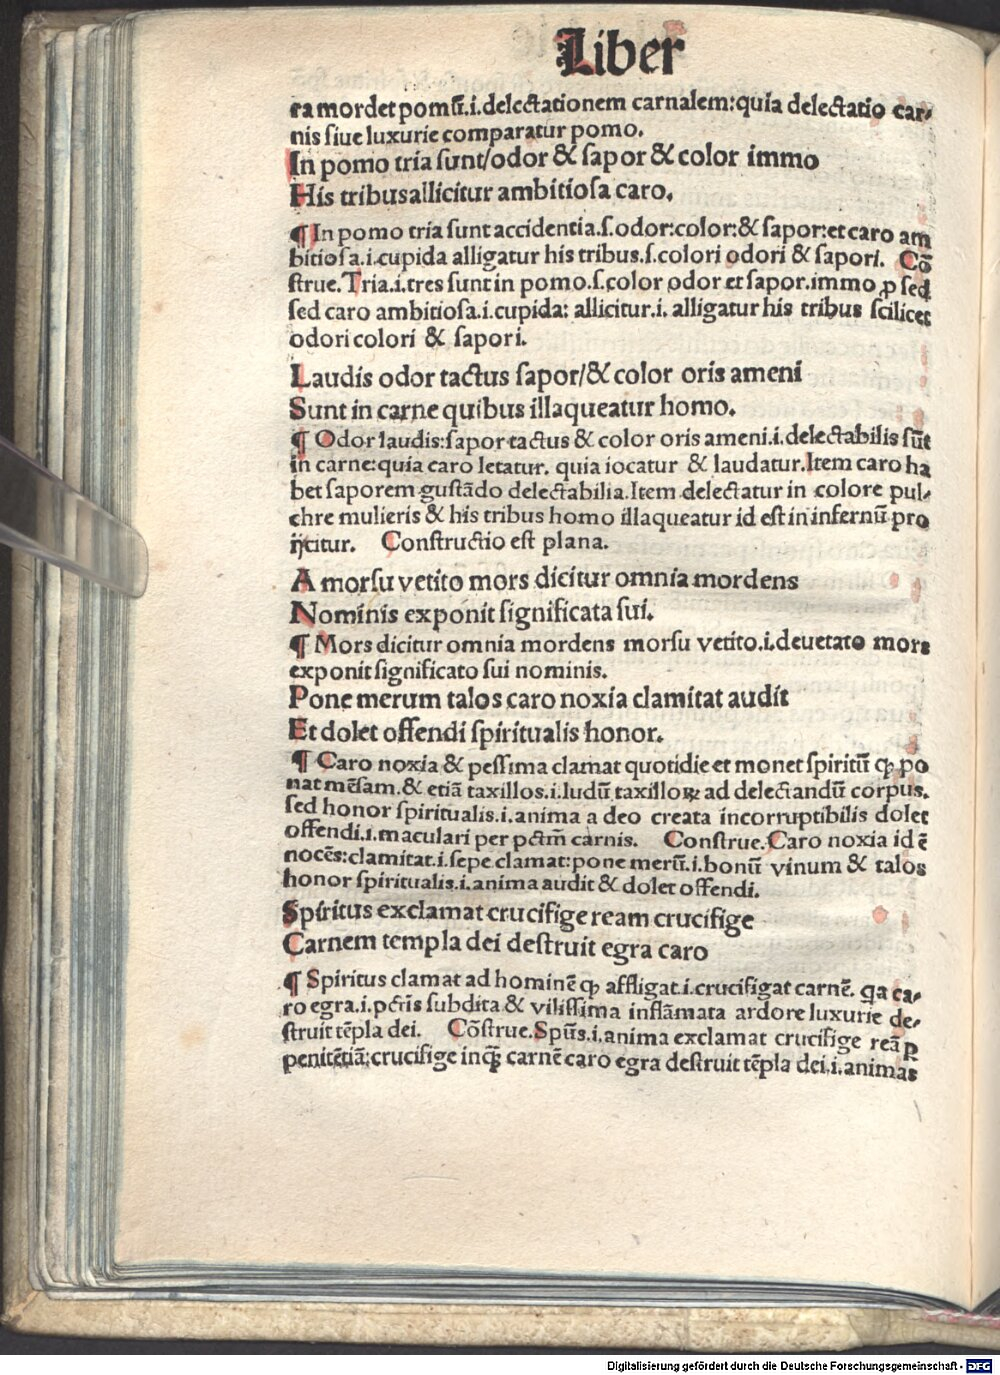 Liber
ra mordet pomū.i.delectationem carnalem:quia delectatio car⸗
nis ſiue luxurie comparatur pomo.
In pomo tria ſunt/odor & ſapor & color immo
His tribus allicitur ambitioſa caro.
¶ In pomo tria ſunt accidentia.ſ.odor:color:& ſapor:et caro am
bitioſa.i.cupida alligatur his tribus.ſ.colori odori & ſapori. Cō
ſtrue.Tria.i.tres ſunt in pomo.ſ.color odor et ſapor.immo ꝓ ſed
ſed caro ambitioſa.i.cupida: allicitur.i. alligatur his tribus ſcilicet
odori colori & ſapori.
Laudis odor tactus ſapor/& color oris ameni
Sunt in carne quibus illaqueatur homo.
¶ Odor laudis:ſapor tactus & color oris ameni.i.delectabilis ſūt
in carne:quia caro letatur. quia iocatur & laudatur.Item caro ha
bet ſaporem guſtādo delectabilia.Item delectatur in colore pul⸗
chre mulieris & his tribus homo illaqueatur id eſt in infernū pro
ijcitur. Conſtructio eſt plana.
A morſu vetito mors dicitur omnia mordens
Nominis exponit ſignificata ſui.
¶ Mors dicitur omnia mordens morſu vetito.i.deuetato mors
exponit ſignificato ſui nominis.
Pone merum talos caro noxia clamitat audit
Et dolet offendi ſpiritualis honor.
¶ Caro noxia & peſſima clamat quotidie et monet ſpiritū ꝙ po
nat mēſam.& etiā taxillos.i.ludū taxilloꝝ ad delectandū corpus.
ſed honor ſpiritualis.i.anima a deo creata incorruptibilis dolet
offendi.i.maculari per pctm̄ carnis. Conſtrue.Caro noxia id ē
nocēs:clamitat.i.ſepe clamat:pone merū.i.bonū vinum & talos
honor ſpiritualis.i.anima audit & dolet offendi.
Spiritus exclamat crucifige ream crucifige
Carnem templa dei deſtruit egra caro
¶ Spiritus clamat ad hominē ꝙ affligat.i.crucifigat carnē. qa ca⸗
ro egra.i.pctris ſubdita & viliſſima inflāmata ardore luxurie de⸗
ſtruit tēpla dei. Cōſtrue.Spūs.i.anima exclamat crucifige reā ꝑ
penitētiā:crucifige inqͣ carnē caro egra deſtruit tēpla dei.i.animas
Digitalisierung gefördert durch die Deutsche Forschungsgemeinschaft - DFG